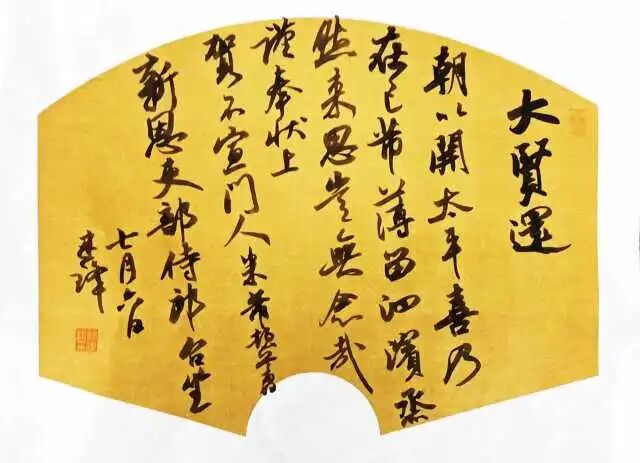 大賢還
朝以開太平喜乃
在己芾薄留泗濱烝
然来思豈無念哉
謹奉状上
賀不宣門人米芾頓首
新恩吏部侍郎台坐
七月六日